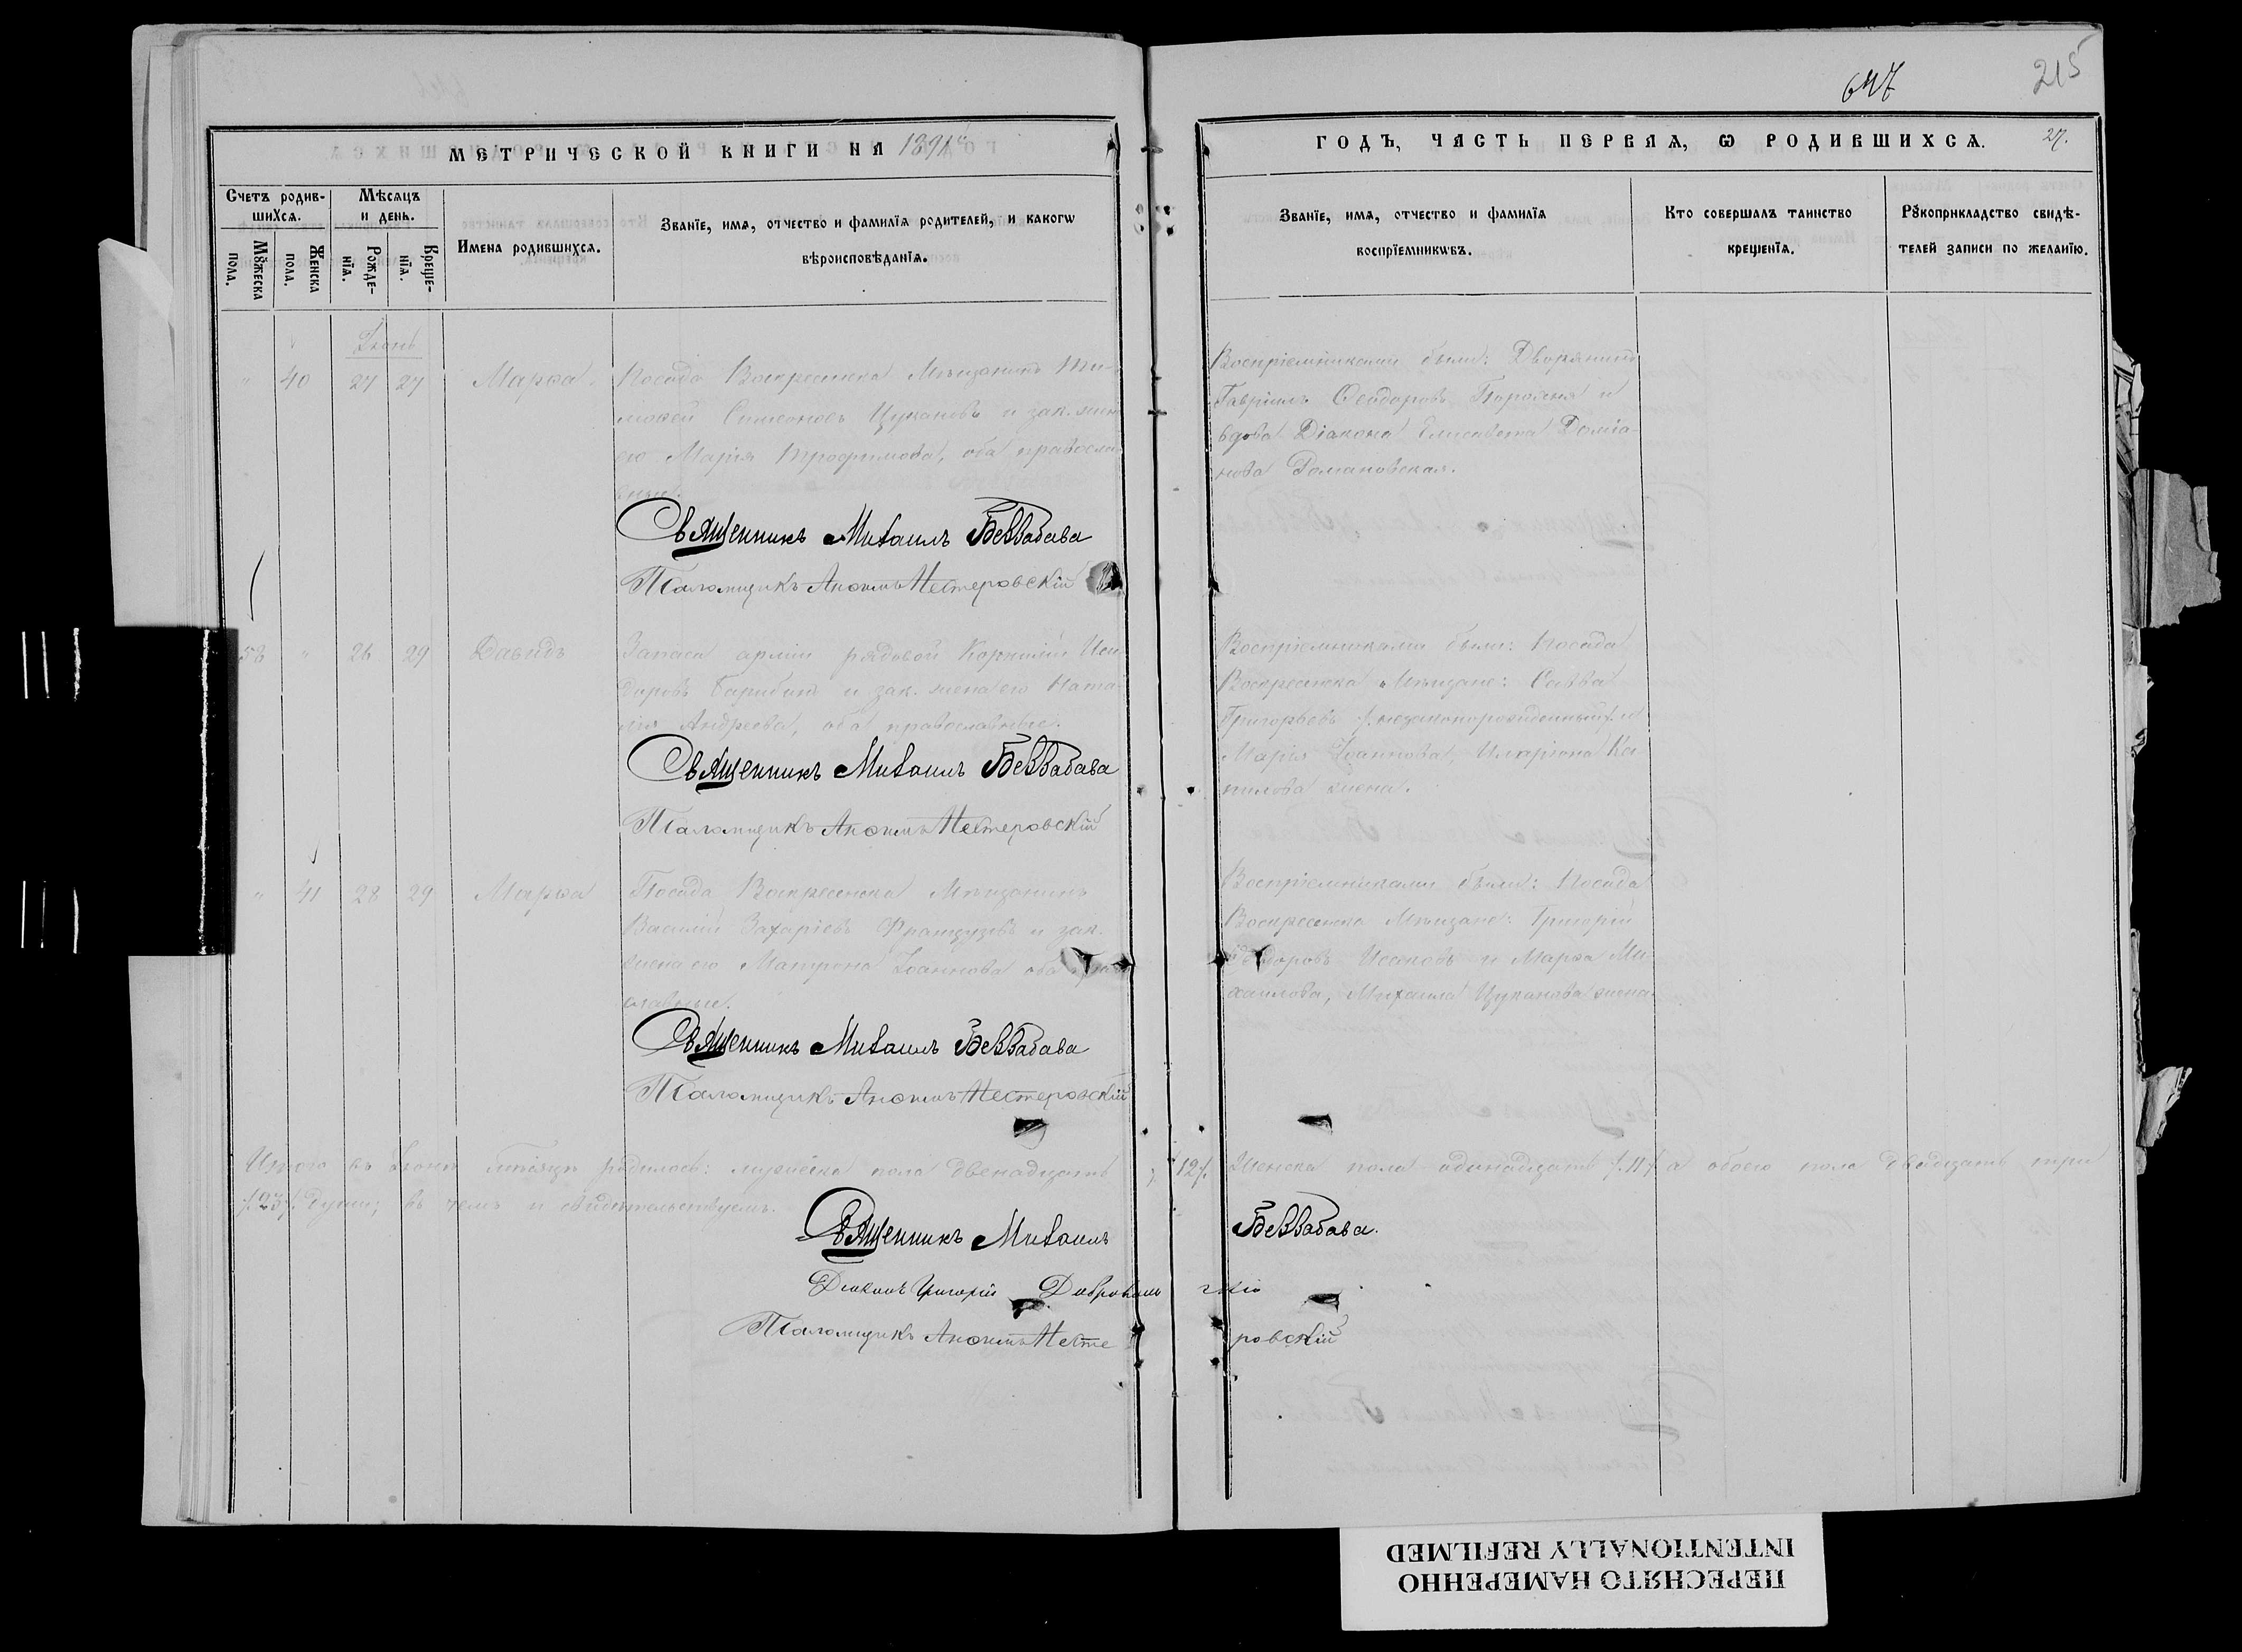 647
215
МЕТРИЧЕСКОЙ КНИГИ НА 1891й
ГОДЪ, ЧАСТЬ ПЕРВАЯ, Ѡ РОДИВШИХСЯ.
27.
Счетъ родив-
шихся.
Мѣсяцъ
и день.
Мꙋжеска
пола.
Женска
пола.
Рожде-
нїя.
Креще-
нїя.
Имена родившихся.
Званїе, имя, отчество и фамилїя родителей, и какогѡ
вѣроисповѣданїя.
Званїе, имя, отчество и фамилїя
воспрїемникѡвъ.
Кто совершалъ таинство
крещенїя.
Рꙋкоприкладство свидѣ-
телей записи по желанїю.
Іюнь
" 40 27 27 Марѳа.
Посада Воскресенска Мѣщанинъ Ти-
моѳей Симеоновъ Цукановъ и зак. жена
его Марія Трофимова, оба православ-
ные.
Священникъ Михаилъ Беззабава
Псаломщикъ Нестеровскій
Воспріемниками были: Дворянинъ
Гавріилъ Ѳеодоровъ и
вдова Діакона Елисавета Доміа-
нова Романовская.
58 " 26 29 Давидъ
Запаса арміи рядовой Корнилій
и зак. жена его Ната-
лія Андреева, оба православные.
Священникъ Михаилъ Беззабава
Псаломщикъ Нестеровскій
Воспріемниками были: Посада
Воскресенска Мѣщане: Савва
Григорьевъ /незаконорожденный/ и
Марія Іоаннова, Иларіона Ка-
пилова жена.
" 41 28 29 Марѳа
Посада Воскресенска Мѣщанинъ
Василій Захаріевъ Французовъ и зак.
жена его Матрона Іоаннова оба право-
славные.
Священникъ Михаилъ Беззабава
Псаломщикъ Нестеровскій
Воспріемниками были: Посада
Воскресенска Мѣщане: Григорій
Исаковъ и Марѳа Ми-
хаилова, Михаила Цуканова жена.
Итого въ Іюнѣ мѣсяцѣ родилось: мужеска пола двенадцать /.12/. Женска пола одинадцать /.11/. а обоего пола двадцать три
/.23/. души; въ чемъ и свидѣтельствуемъ.
Священникъ Михаилъ Беззабава.
Діаконъ Григорій
Псаломщикъ Нестеровскій
ПЕРЕСНЯТО НАМЕРЕННО
INTENTIONALLY REFILMED